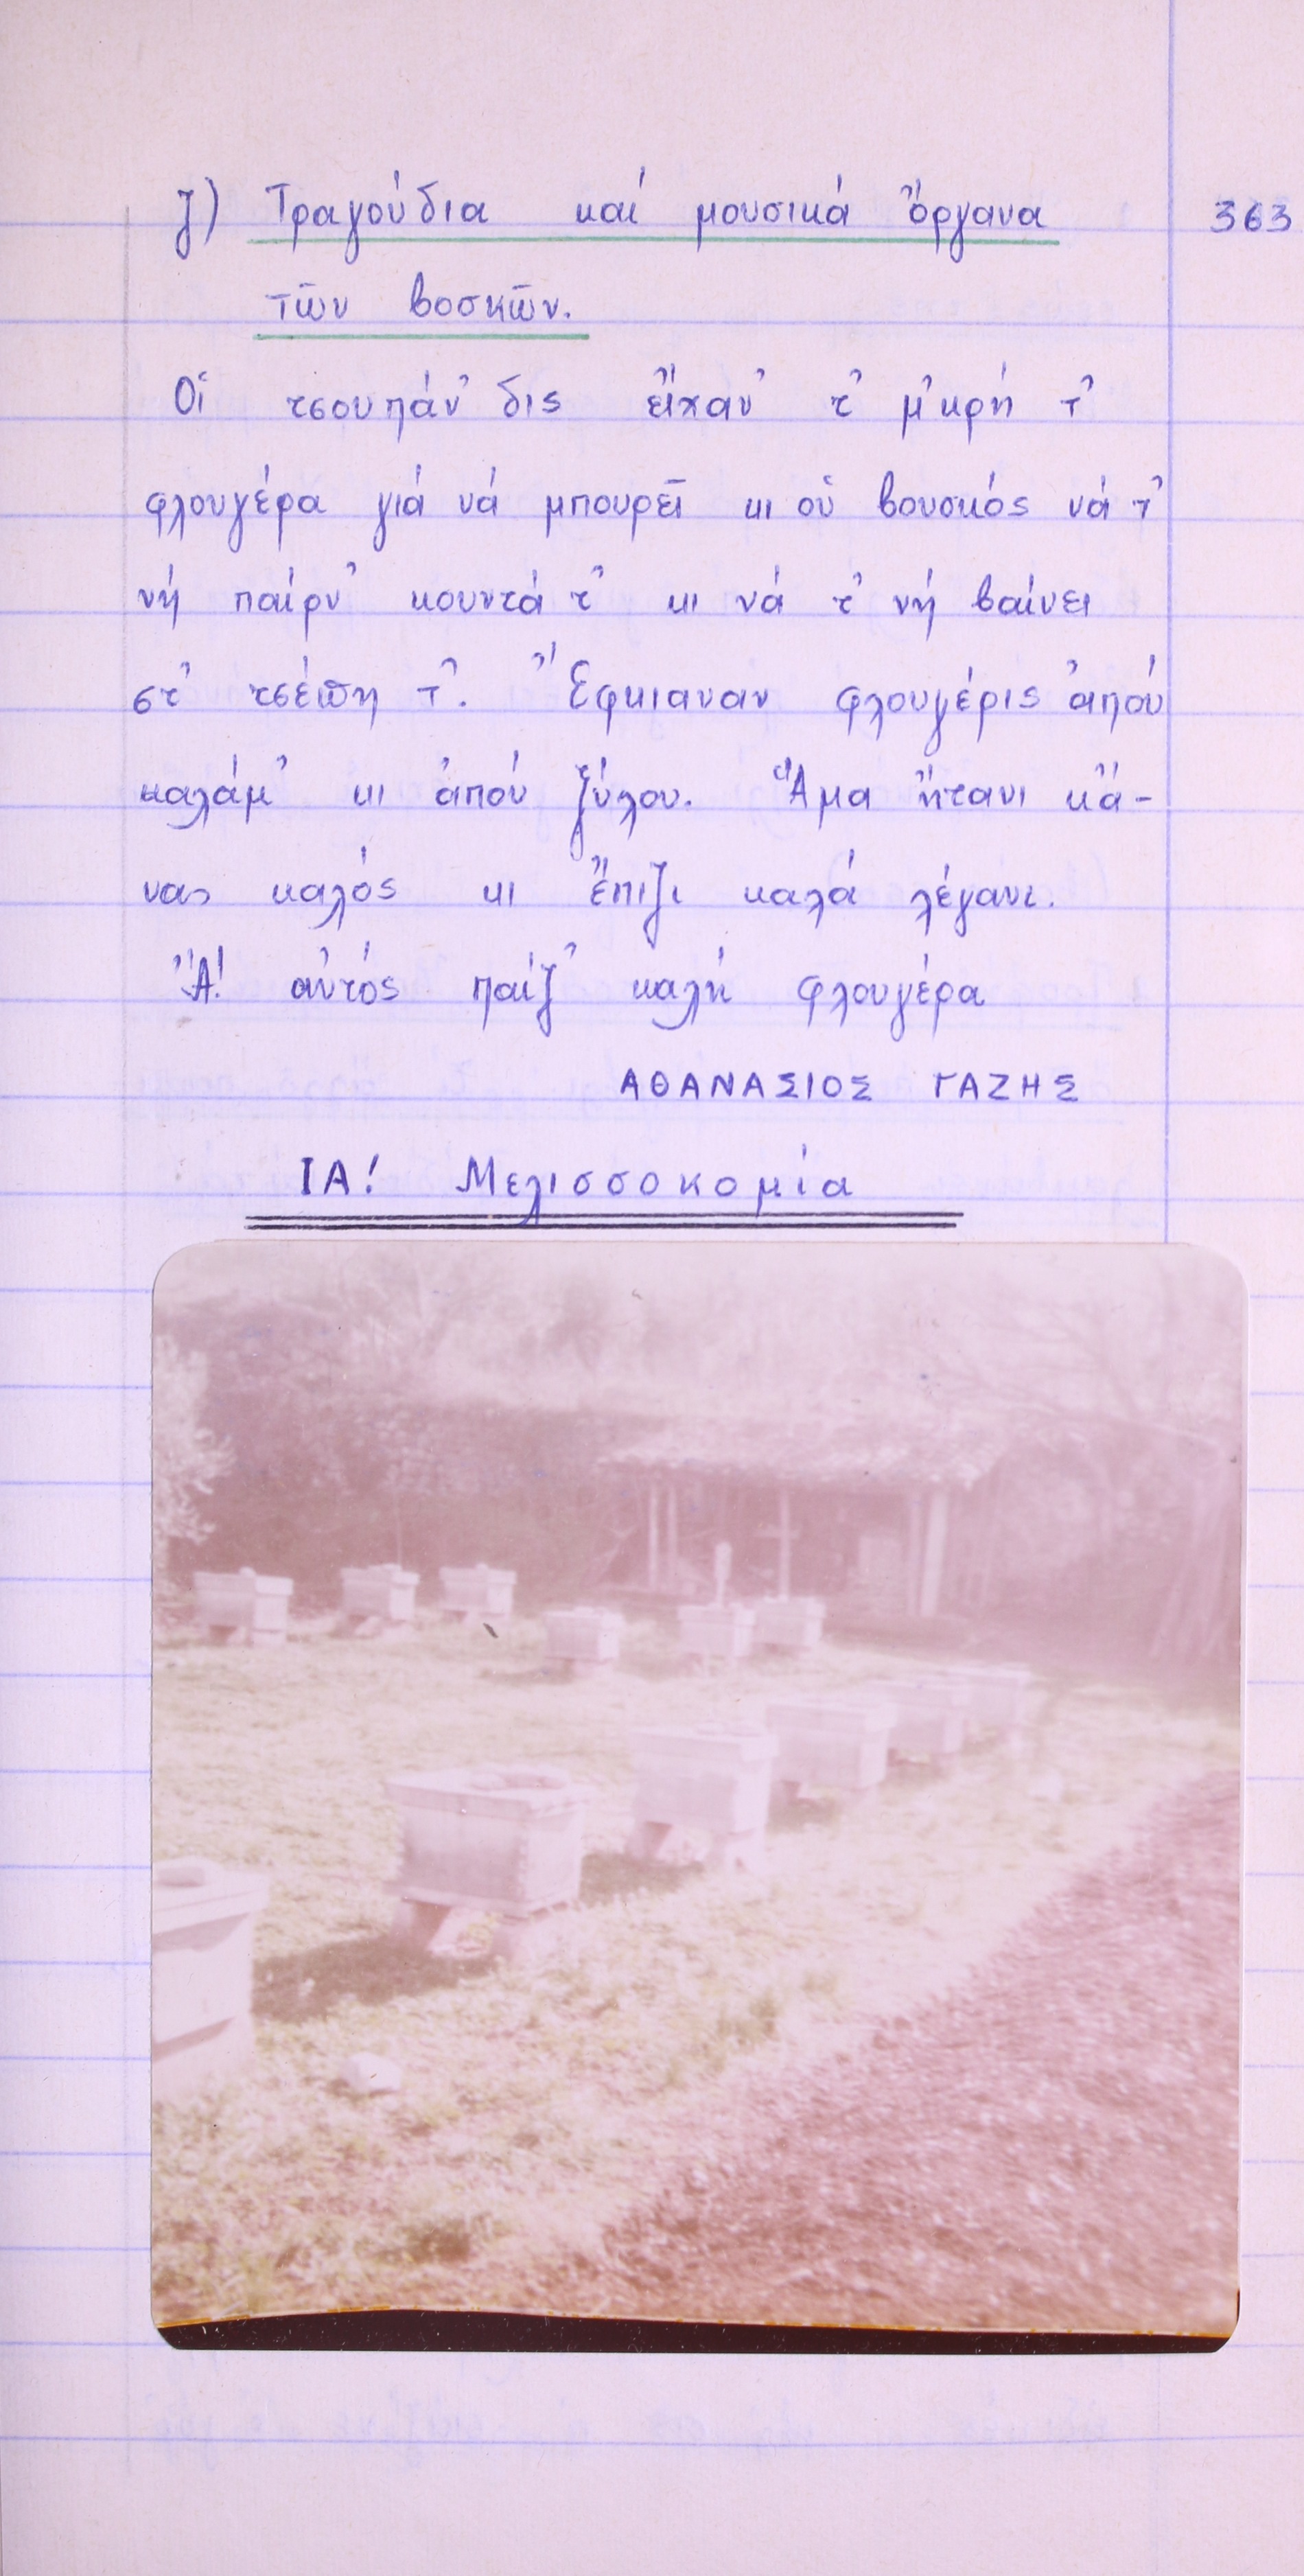 ζ) Τραγούδια καί μουσικά ὄργανα 363
τῶν βοσκῶν.
Οἱ τσουπάν' δις εἴχαν' τ' μ'κρή τ'
φλουγέρα γιά νά μπουρεῖ κι οὑ βουσκός νά τ'
νή παίρν' κουντά τ' κι νά τ' νή βαίνει
στ' τσέπη τ'. Ἔφκιαναν φλουγέρις ἀπού
καλάμ' κι ἀπού ξύλου. Ἅμα ἤτανι κἄ-
νας καλός κι ἔπιζι καλά λέγανι.
Ἄ! αὐτός παίζ' καλή φλουγέρα
ΑΘΑΝΑΣΙΟΣ ΓΑΖΗΣ
ΙΑ! Μελισσοκομία